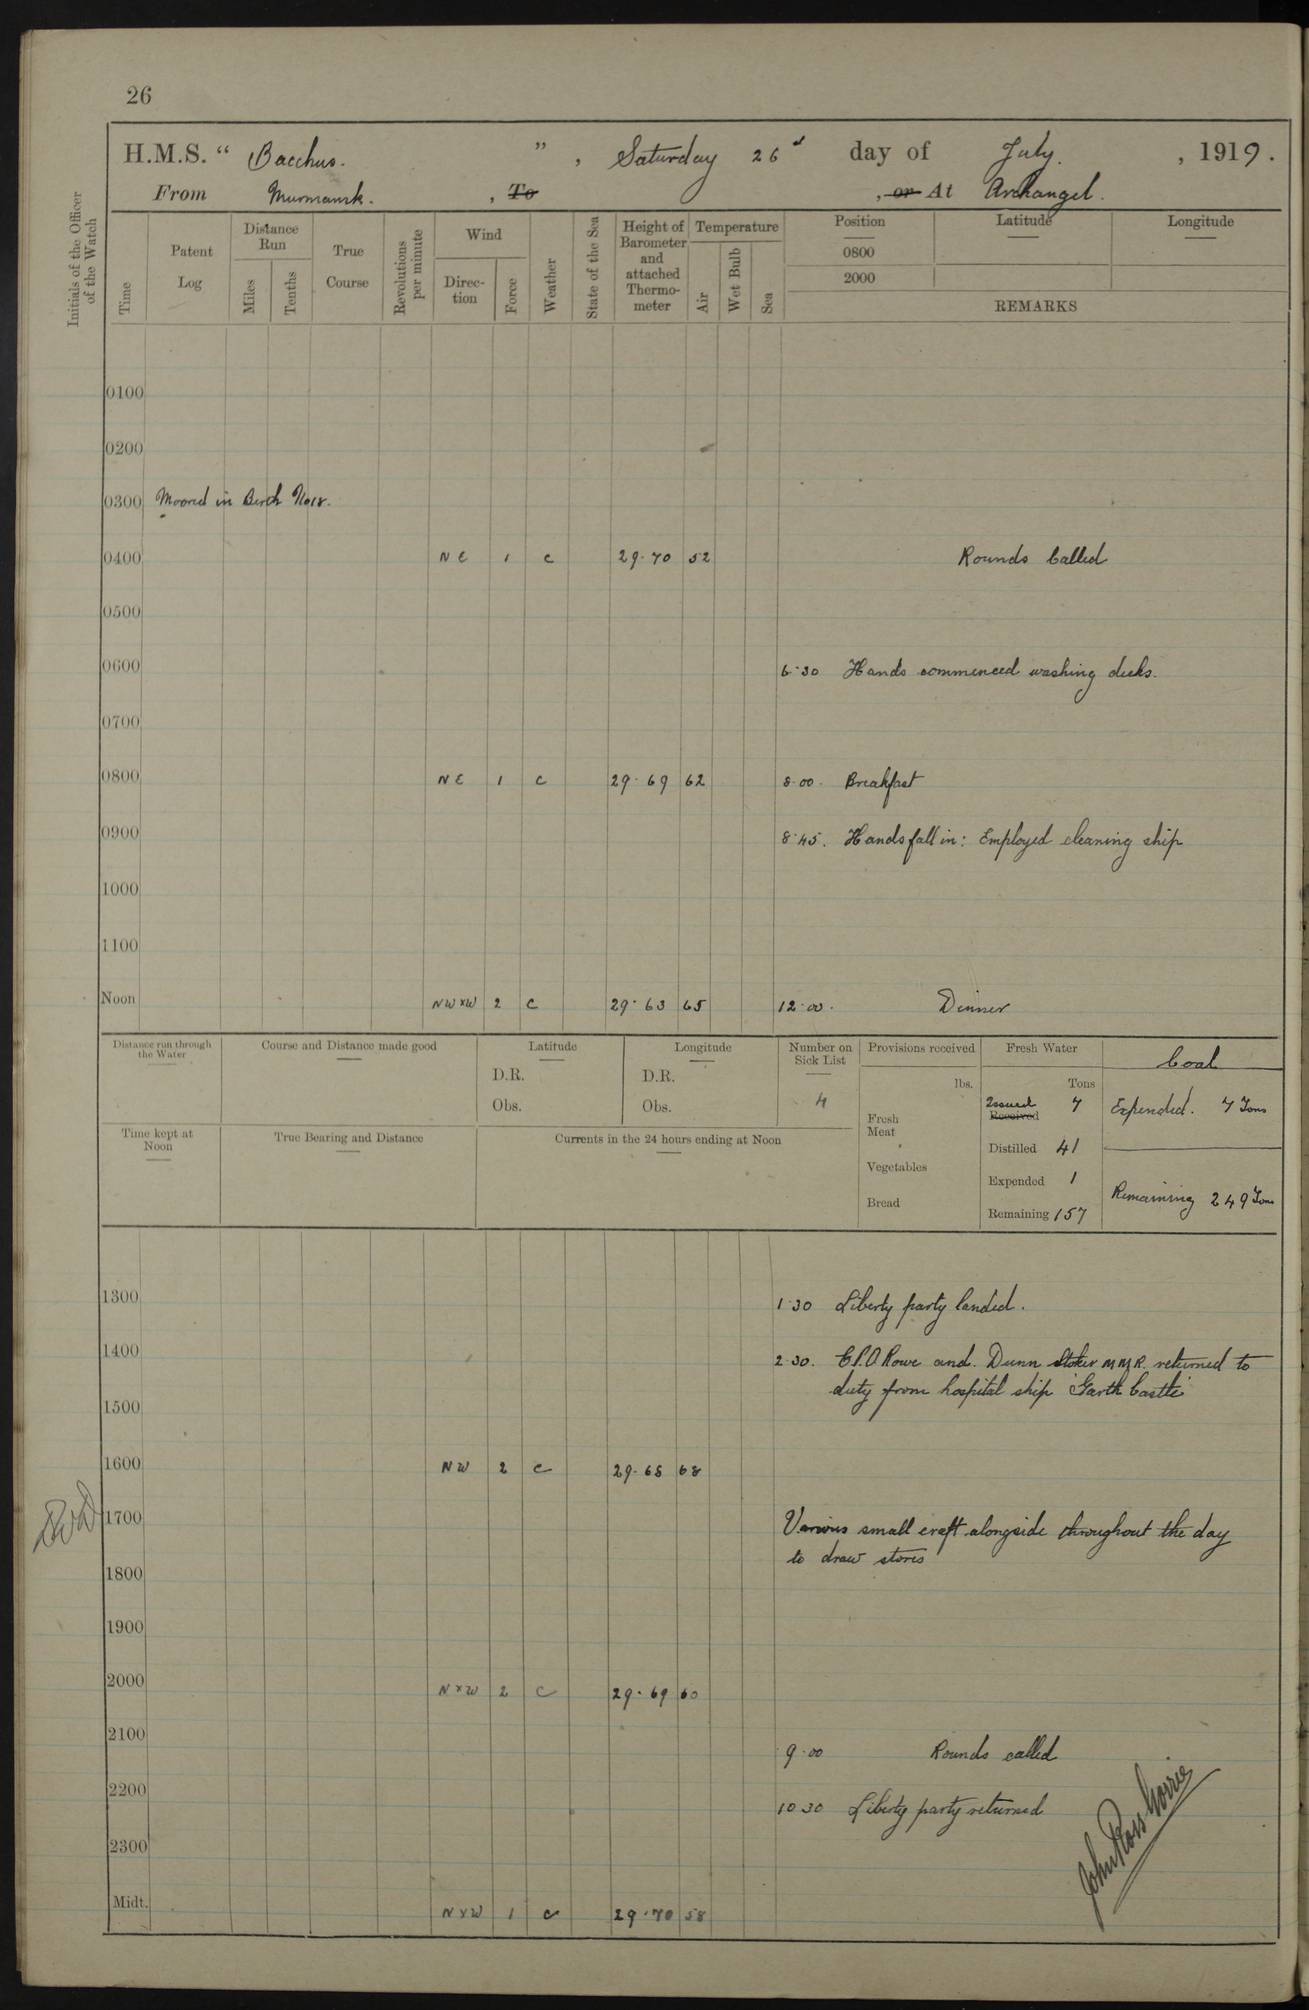 26
H.M.S. “ Bacchus. ” , Saturday 26 day of July. , 1919.
From Murmansk. , To , or At Archangel.
Initials of the Officer of the Watch
Time
Patent Log
Distance Run
Miles
Tenths
True Course
Revolutions per minute
Wind
Direc-tion
Force
Weather
State of the Sea
Height of Barometer and attached Thermo-meter
Temperature
Air
Wet Bulb
Sea
Position Latitude Longitude
0800
2000
REMARKS
0100
0200
0300 Moored in Berth No 18.
0400 NE 1 c 29.70 52 Rounds Called
0500
0600 6.30 Hands commenced washing decks.
0700
0800 NE 1 c 29.69 62 8.00. Breakfast
0900 8.45. Hands fall in: Employed cleaning ship
1000
1100
Noon NW x W 2 c 29.63 65 12.00. Dinner
Distance run through the Water
Course and Distance made good
Latitude
D.R.
Obs.
Longitude
D.R.
Obs.
Number on Sick List
4
Provisions received
lbs.
Fresh Meat
Vegetables
Bread
Fresh Water
Tons
Issued Received 7
Distilled 41
Expended 1
Remaining 157
Coal
Expended. 7 Tons
Remaining 249 Tons
Time kept at Noon
True Bearing and Distance
Currents in the 24 hours ending at Noon
1300 1.30 Liberty party landed.
1400 2.30. C.P.O Rowe and. Dunn Stoker M.M.R. returned to
duty from hospital ship 'Garth Castle'
1500
1600 NW 2 c 29.68 68
1700 Various small craft alongside throughout the day
to draw stores
1800
1900
2000 N x W 2 c 29.69 60
2100 9.00 Rounds called
2200 10.30 Liberty party returned
2300
John Ross Gorrie
Midt. N x W 1 c 29.70 58